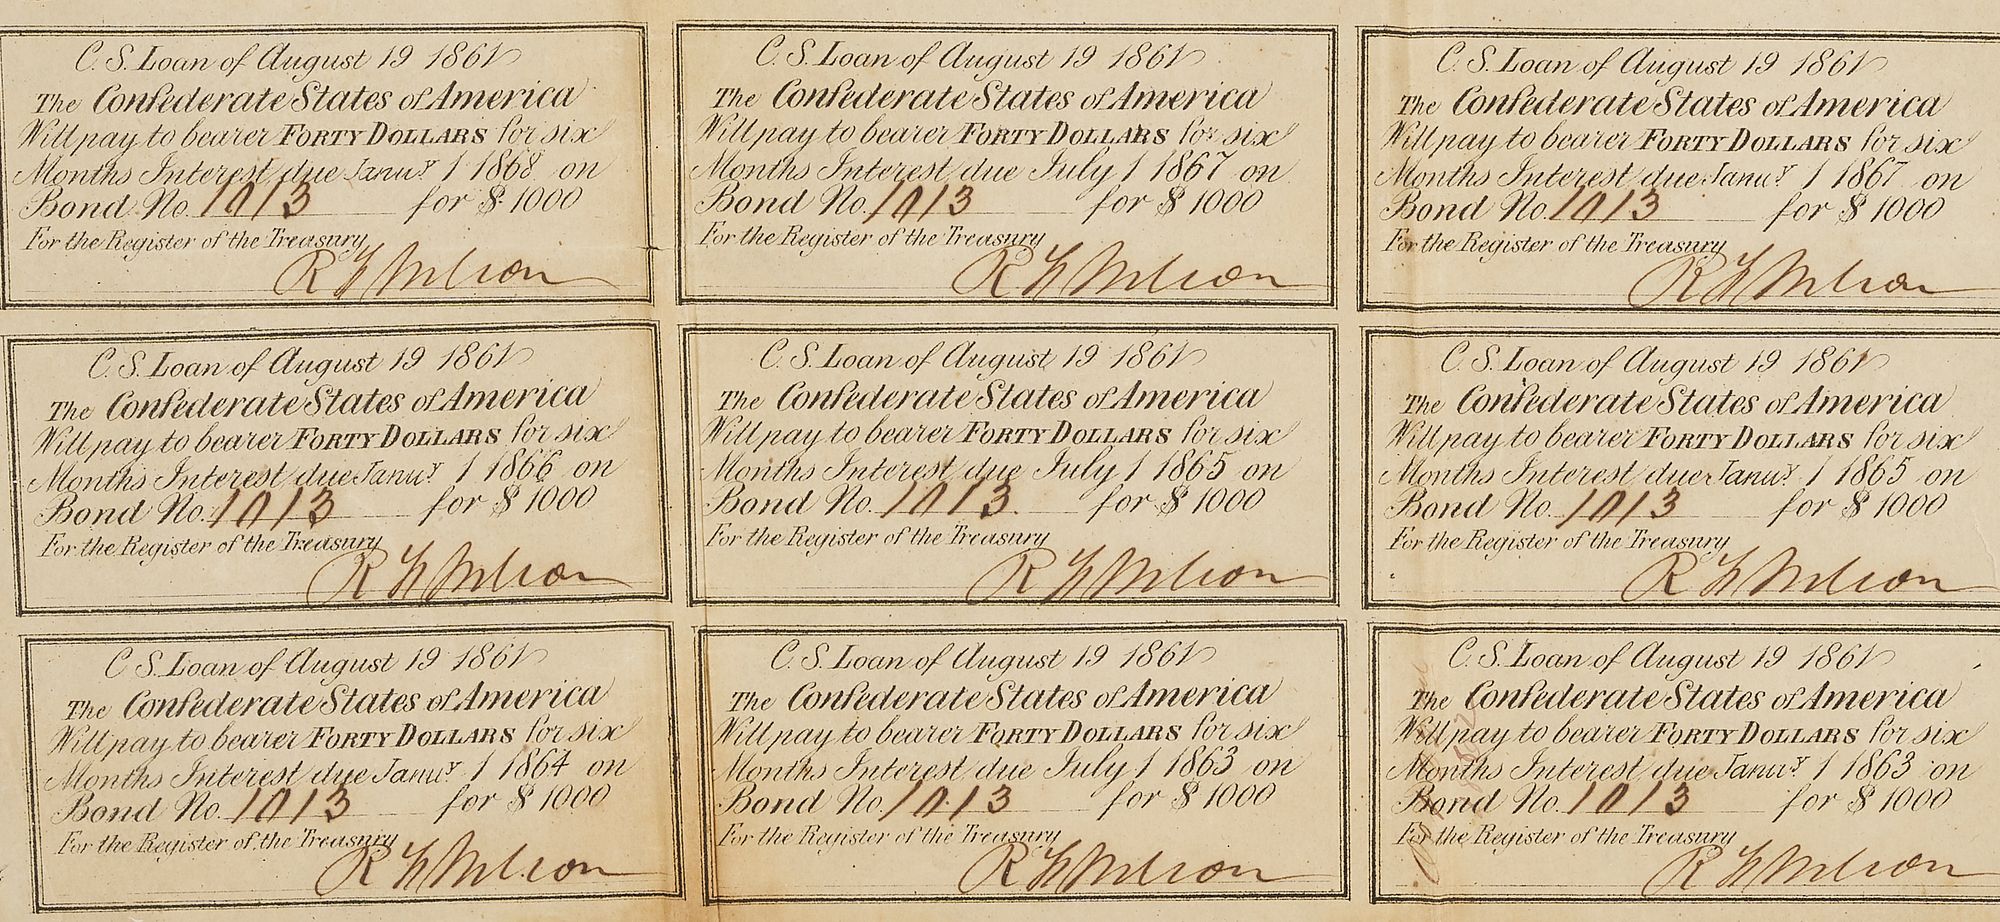 C. S. Loan of August 19 1861
The Confederate States of America
Will pay to bearer FORTY DOLLARS for six
Months Interest due Janu.y 1 1868 on
Bond No. 1013 for $ 1000
For the Register of the Treasury
C. S. Loan of August 19 1861
The Confederate States of America
Will pay to bearer FORTY DOLLARS for six
Months Interest due July 1 1867 on
Bond No. 1013 for $ 1000
For the Register of the Treasury
C. S. Loan of August 19 1861
The Confederate States of America
Will pay to bearer FORTY DOLLARS for six
Months Interest due Janu.y 1 1867 on
Bond No. 1013 for $ 1000
For the Register of the Treasury
C. S. Loan of August 19 1861
The Confederate States of America
Will pay to bearer FORTY DOLLARS for six
Months Interest due Janu.y 1 1866 on
Bond No. 1013 for $ 1000
For the Register of the Treasury
C. S. Loan of August 19 1861
The Confederate States of America
Will pay to bearer FORTY DOLLARS for six
Months Interest due July 1 1865 on
Bond No. 1013 for $ 1000
For the Register of the Treasury
C. S. Loan of August 19 1861
The Confederate States of America
Will pay to bearer FORTY DOLLARS for six
Months Interest due Janu.y 1 1865 on
Bond No. 1013 for $ 1000
For the Register of the Treasury
C. S. Loan of August 19 1861
The Confederate States of America
Will pay to bearer FORTY DOLLARS for six
Months Interest due Janu.y 1 1864 on
Bond No. 1013 for $ 1000
For the Register of the Treasury
C. S. Loan of August 19 1861
The Confederate States of America
Will pay to bearer FORTY DOLLARS for six
Months Interest due July 1 1863 on
Bond No. 1013 for $ 1000
For the Register of the Treasury
C. S. Loan of August 19 1861
The Confederate States of America
Will pay to bearer FORTY DOLLARS for six
Months Interest due Janu.y 1 1863 on
Bond No. 1013 for $ 1000
For the Register of the Treasury